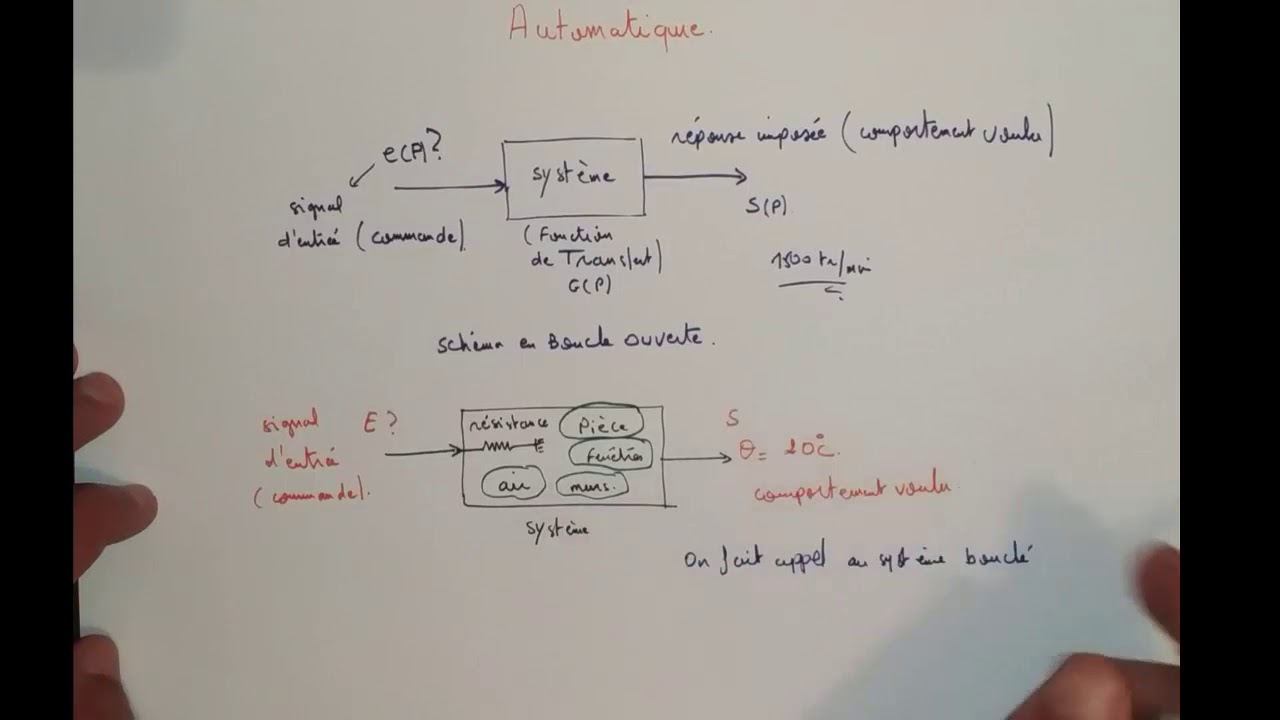 Automatique.
e(P)?
système
réponse imposée (comportement voulu)
signal
d'entrée (commande)
(Fonction
de Transfert)
G(P)
S(P)
1500 tr/min
Schéma en Boucle Ouverte.
signal E?
d'entrée
(commande).
résistance pièce
fenêtres
air murs.
système
S
θ = 20°C.
comportement voulu
On fait appel au système bouclé